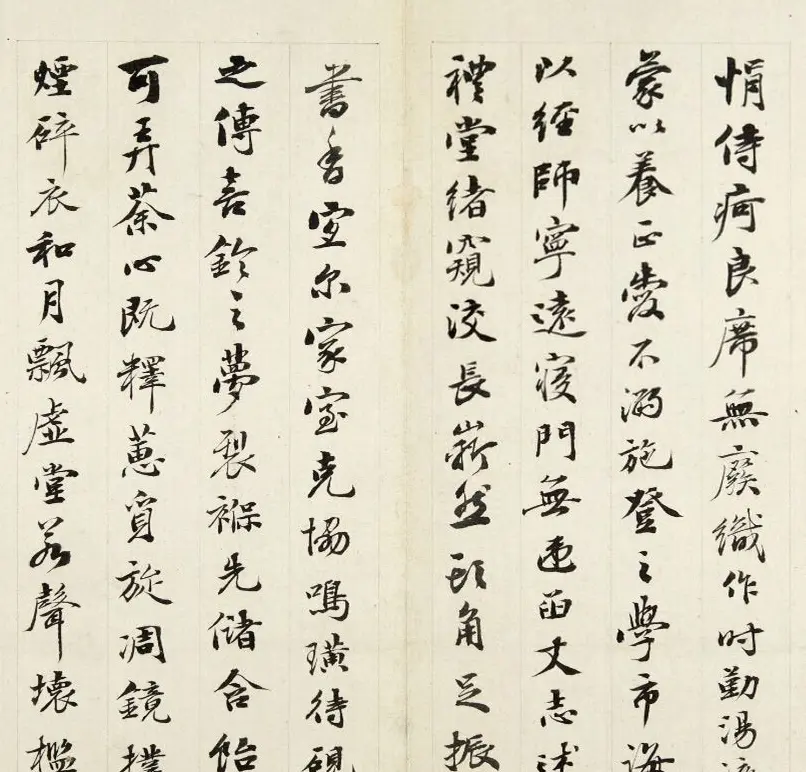 悁侍疴良席無廢織作时勤湯
蒙以養正愛不溺施登之學市誨
以經師寧遠寢門無违函丈志述
禮堂緒窺洨長嶄然頭角足振
書香宜尔家室克協鳴璜待硯
之傳喜鈴之夢裂褓先儲含飴
可弄荼心既釋蕙質旋凋鏡撲
煙碎衣和月飄虛堂若聲壞檻